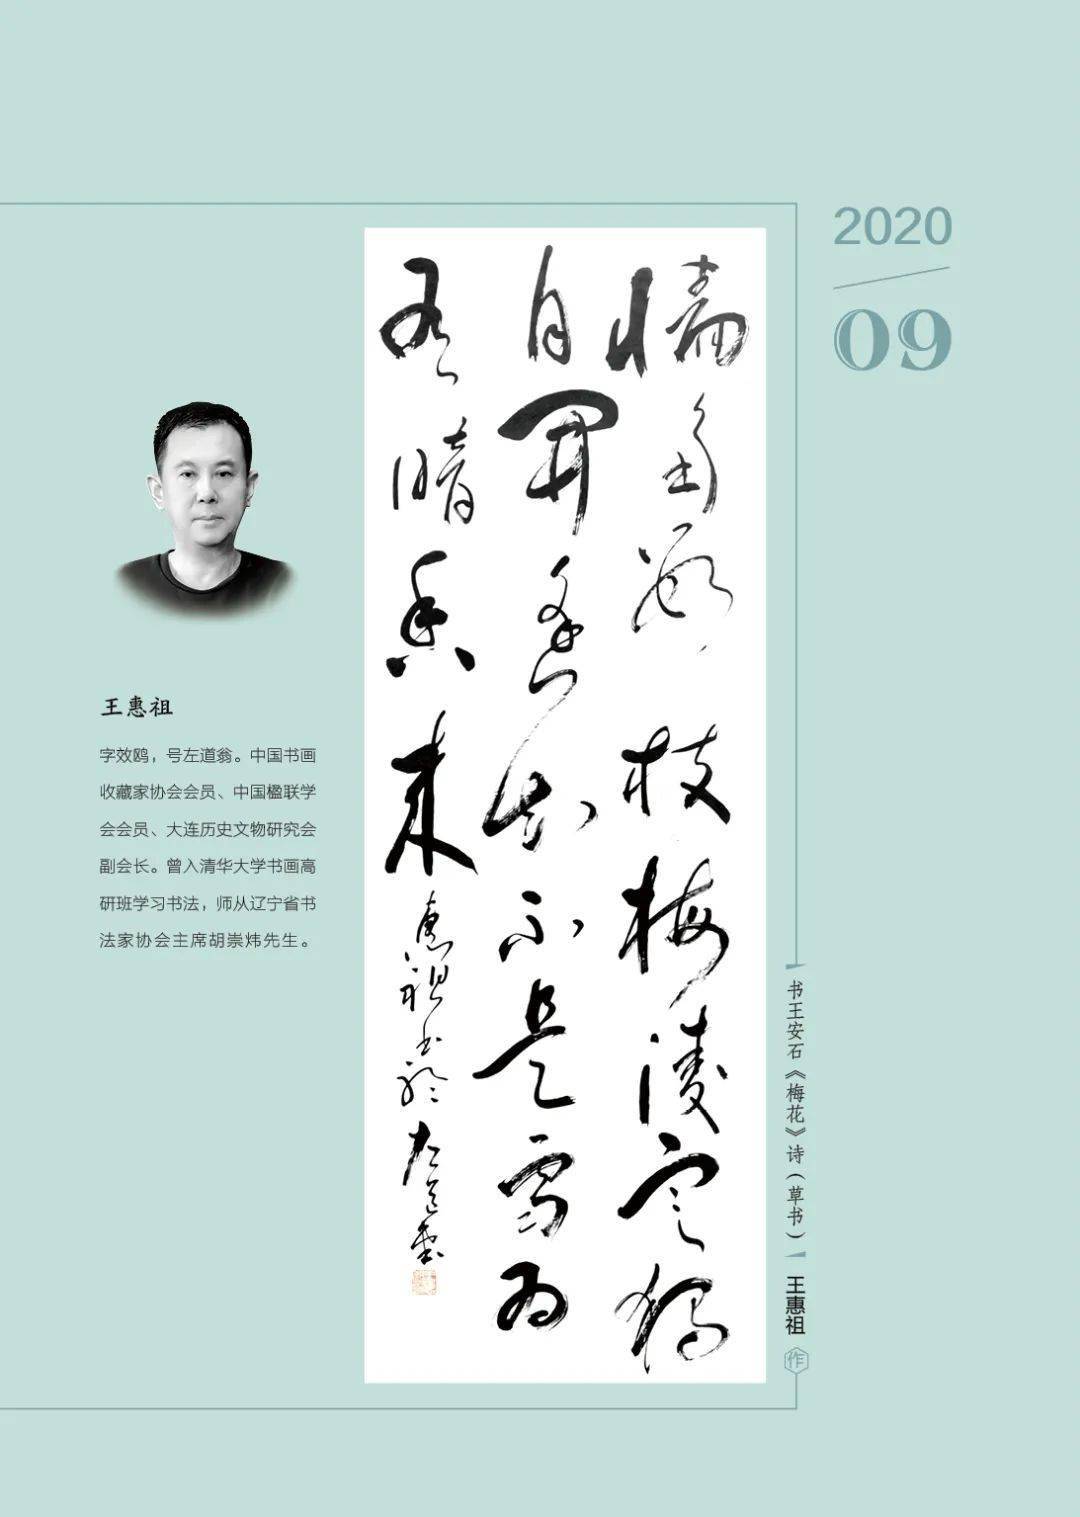 2020
09
牆角數枝梅凌寒獨
自開遙知不是雪為
有暗香來
惠祖書於左道堂
王惠祖
字效鸥，号左道翁。中国书画
收藏家协会会员、中国楹联学
会会员、大连历史文物研究会
副会长。曾入清华大学书画高
研班学习书法，师从辽宁省书
法家协会主席胡崇炜先生。
书王安石《梅花》诗（草书）
王惠祖
作